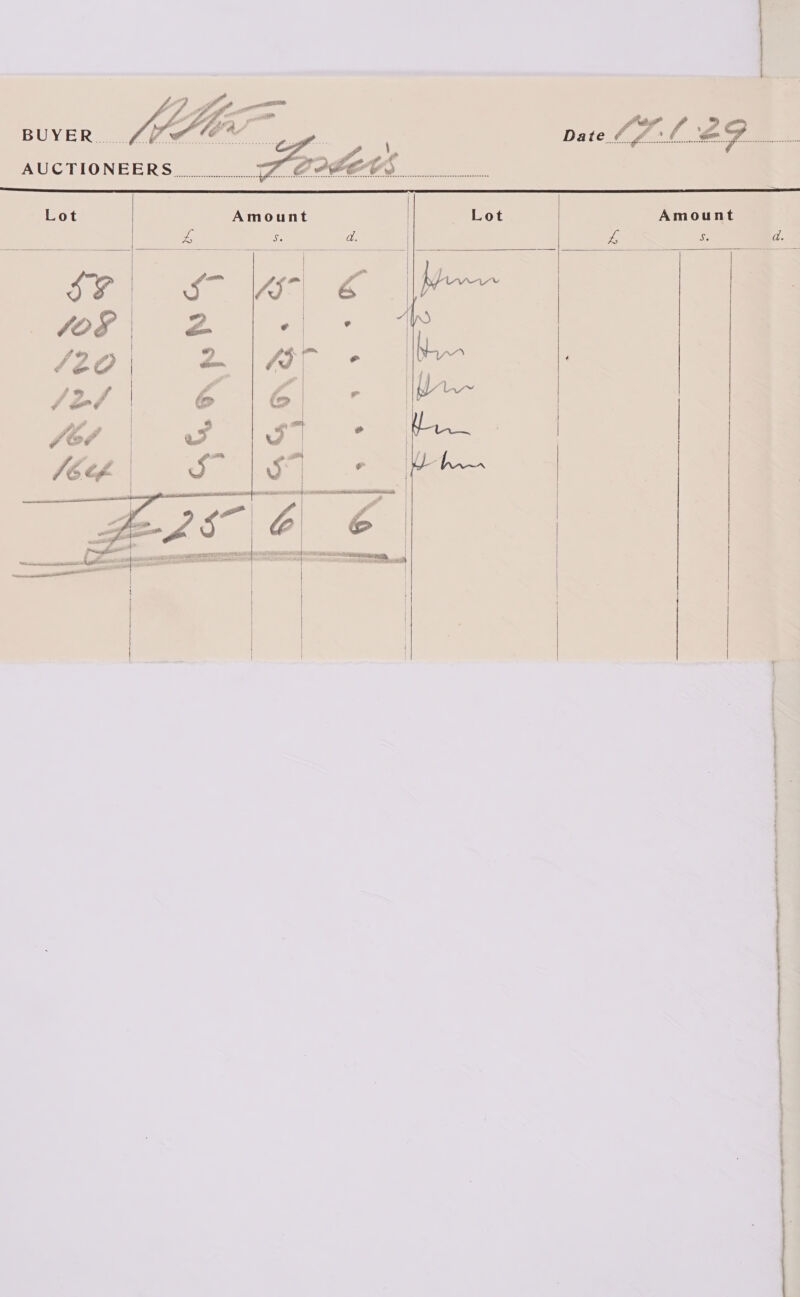 BUYER Date 17.1.29
AUCTIONEERS Fosters
Lot Amount Lot Amount
£ s. d. £ s. d.
58 5 15 6
108 2 . .
120 2 15 .
121 6 6 .
161 3 5 .
164 5 5 .
£25 6 6